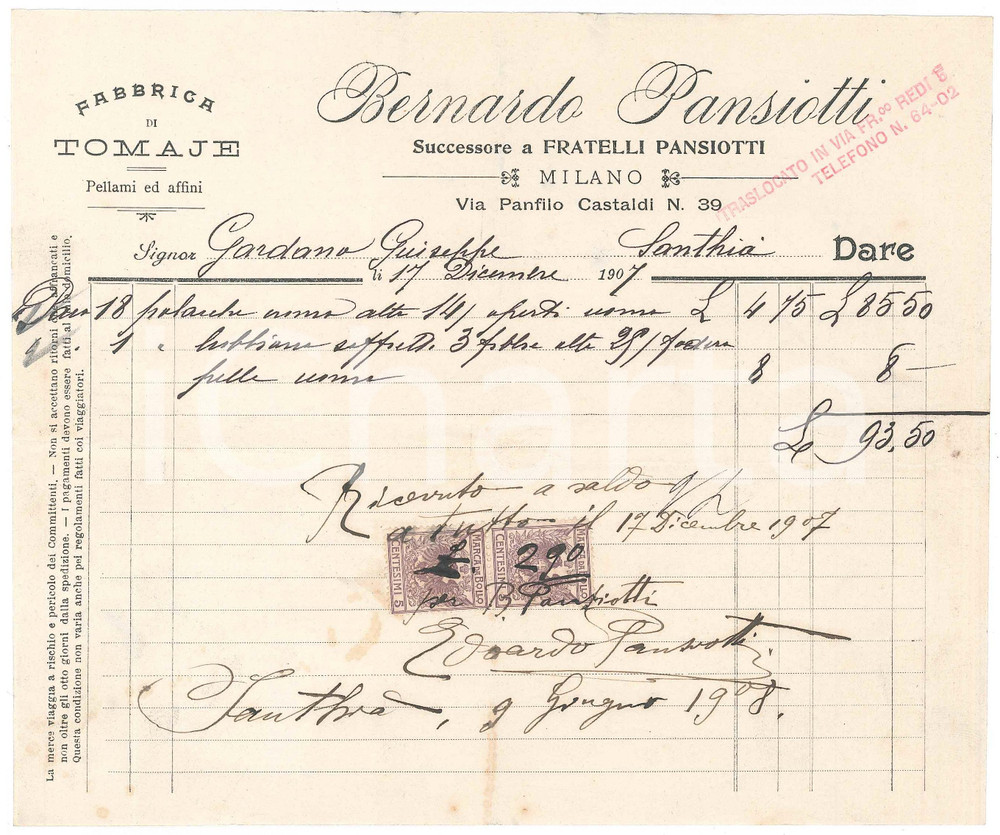 FABBRICA
DI
TOMAJE
Pellami ed affini
Bernardo Pansiotti
Successore a FRATELLI PANSIOTTI
MILANO
Via Panfilo Castaldi N. 39
TRASLOCATO IN VIA FR.co REDI 8
TELEFONO N. 64-02
Signor Gardano Guiseppe Santhià Dare
li 17 Dicembre 1907
18 polacche uomo alte 14/ aperti uomo £ 4 75 £ 85 50
1 " 3 alte 25/
pelle uomo 8 8 —
£ 93,50
Ricevuto a saldo
a tutto il 17 Dicembre 1907
£. 2 90
MARCA DA BOLLO CENTESIMI 5
MARCA DA BOLLO CENTESIMI 5
per B. Pansiotti
Edoardo Pansiotti
Santhià, 9 Giugno 1908.
La merce viaggia a rischio e pericolo dei Committenti. — Non si accettano ritorni non affrancati e
non oltre gli otto giorni dalla spedizione. — I pagamenti devono essere fatti al mio domicilio.
Questa condizione non varia anche pei regolamenti fatti coi viaggiatori.